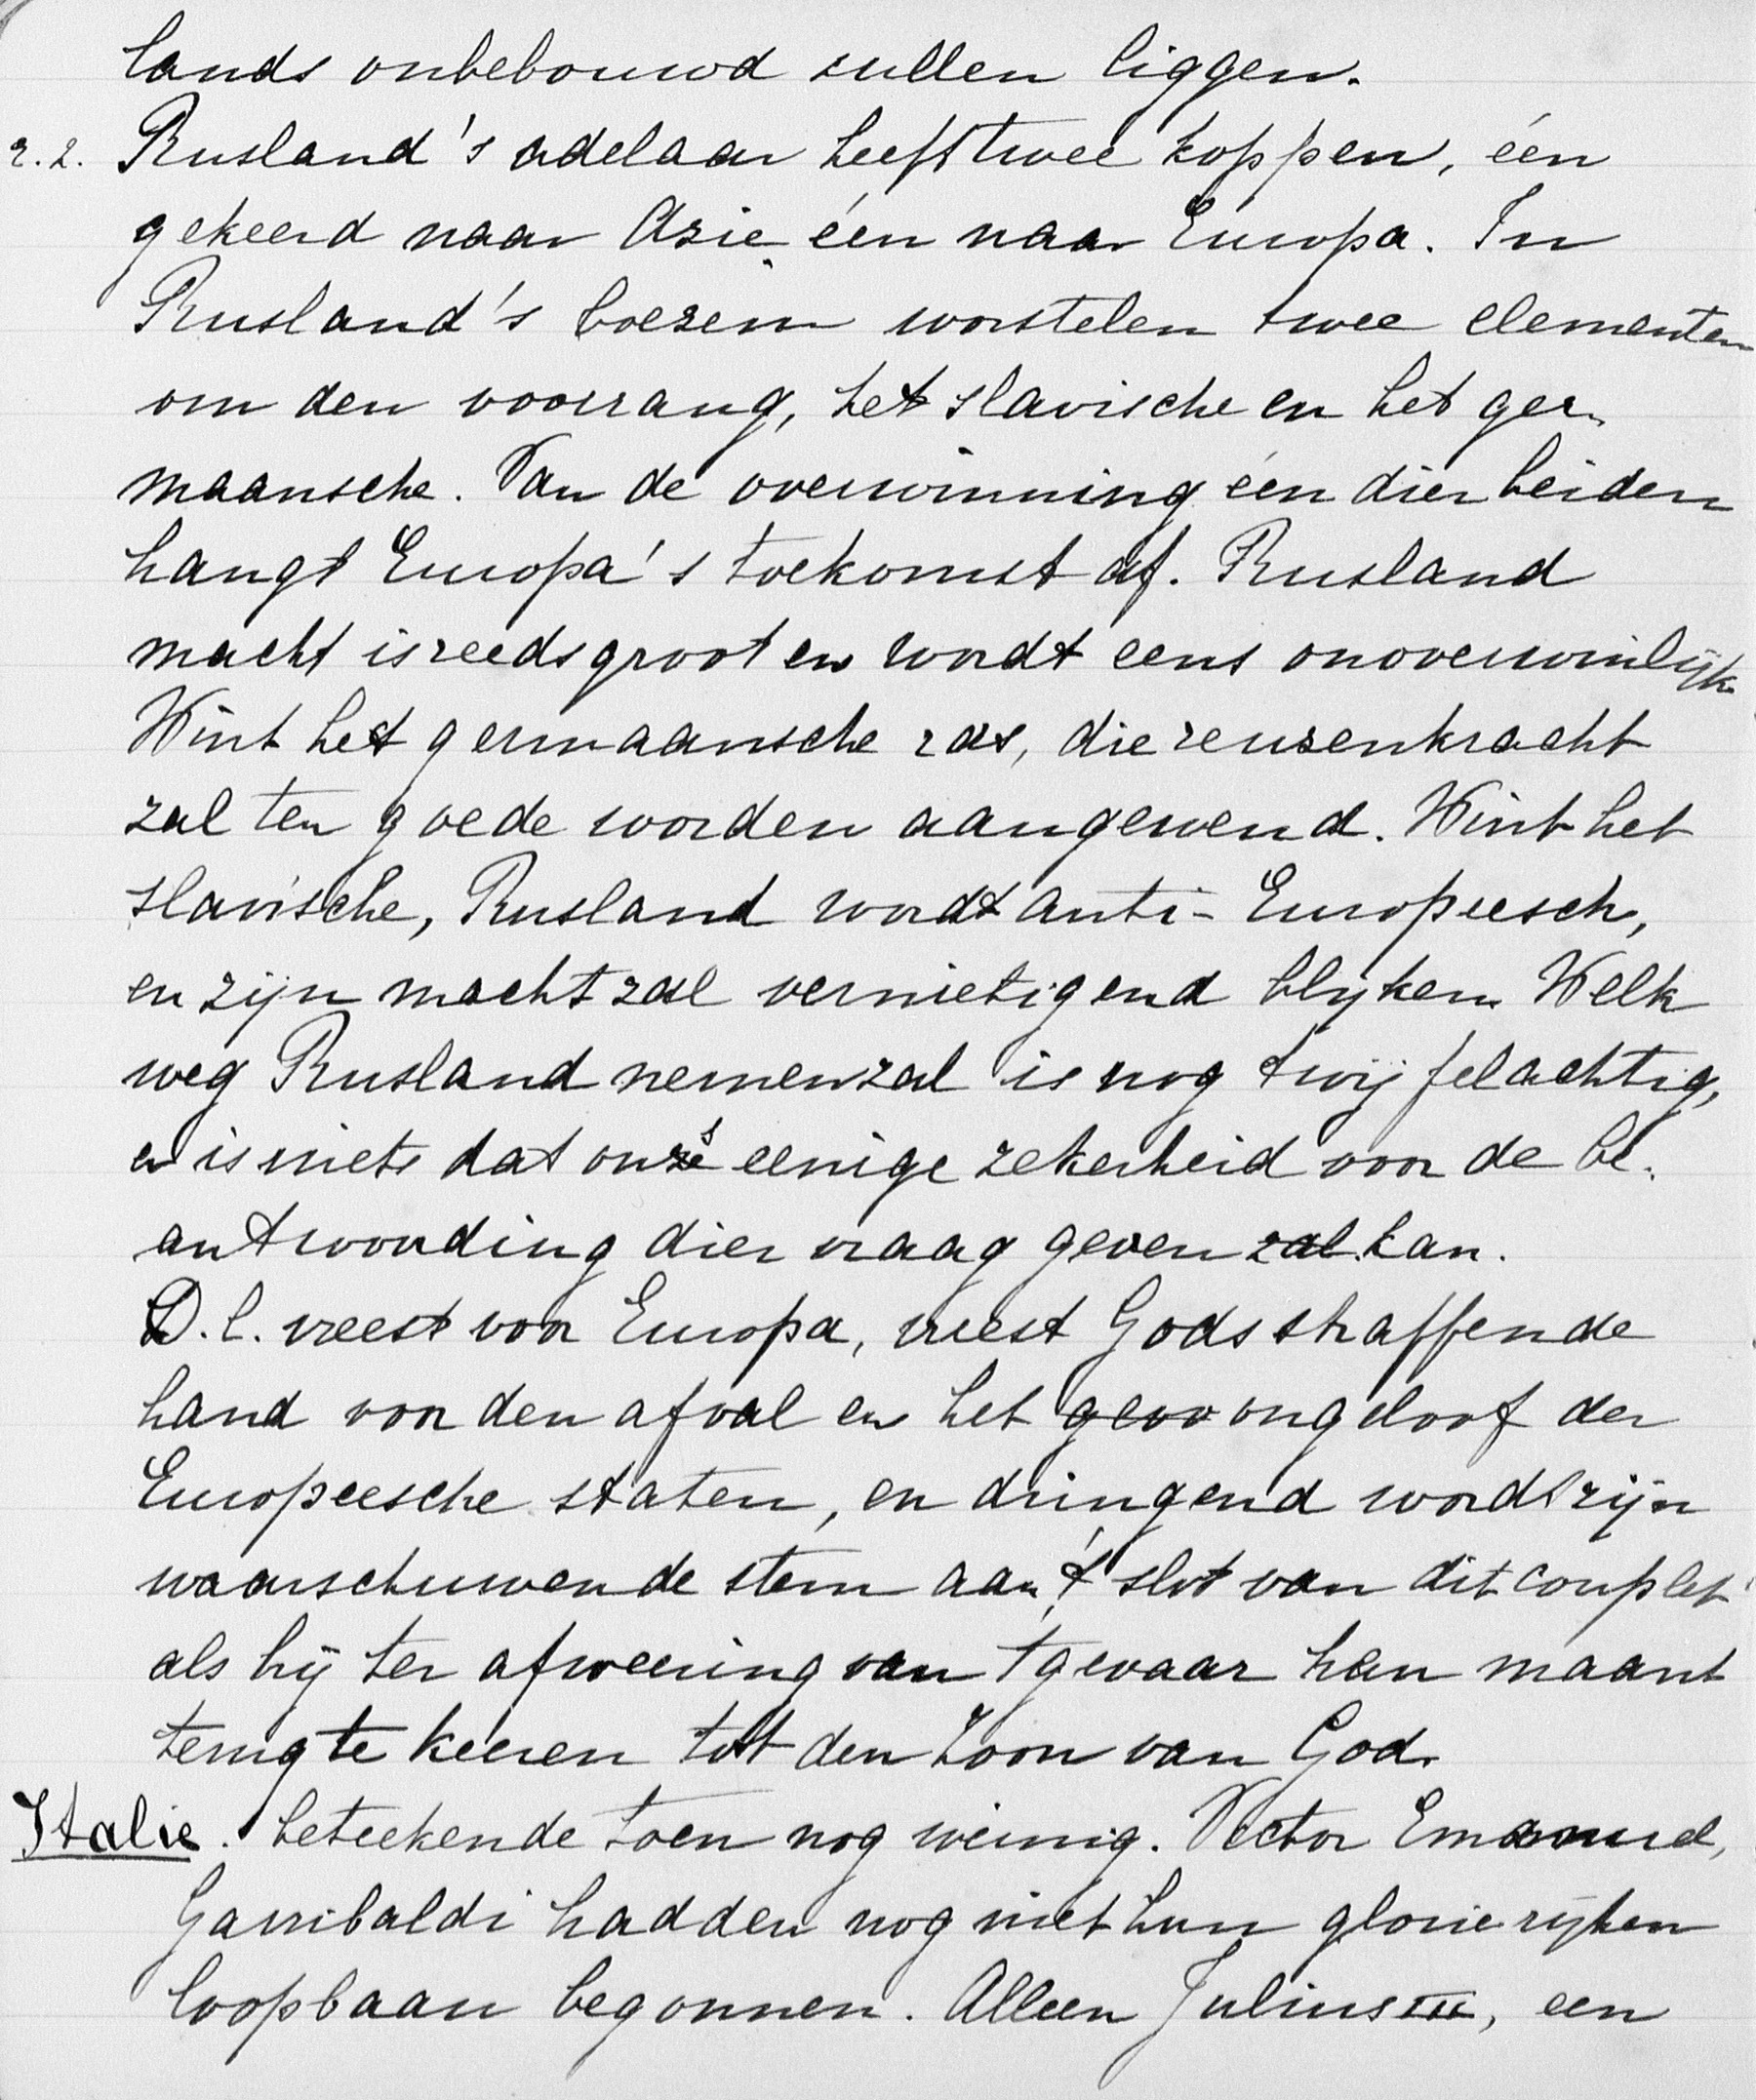 lands onbebouwd zullen liggen.
r. 2. Rusland's adelaar heeft twee koppen, één
gekeerd naar Azie één naar Europa. In
Rusland's boezem worstelen twee elementen
om den voorrang, het slavische en het ger-
maansche. Van de overwinning één dier beiden
hangt Europa's toekomst af. Rusland
macht is reeds groot en wordt eens onoverwinlijk
Wint het germaansche ras, die reuzenkracht
zal ten goede worden aangewend. Wint het
slavische, Rusland wordt anti-Europeesch,
en zijn macht zal vernietigend blijken. Welk
weg Rusland nemen zal is nog twijfelachtig,
er is niets dat ons eenige zekerheid voor de be-
antwoording dier vraag geven zal kan.
D. C. vreest voor Europa, vreest Gods straffende
hand voor den afval en het geoo ongeloof der
Europeesche staten, en dringend wordt zijn
waarschuwende stem aan 't slot van dit couplet
als hij ter afweering van 't gevaar hen maant
terug te keeren tot den Zoon van God.
Italie. beteekende toen nog weinig. Victor Emanuel,
Garribaldi hadden nog niet hun glorierijken
loopbaan begonnen. Alleen Julius III, een